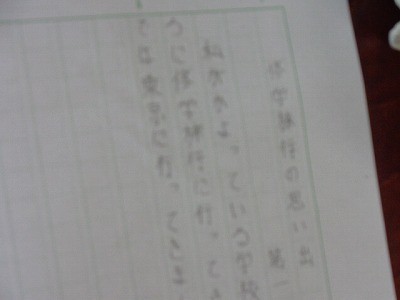 修学旅行の思い出 第一
私がかよっている学校
うに修学旅行に行ってき
では東京に行ってきま